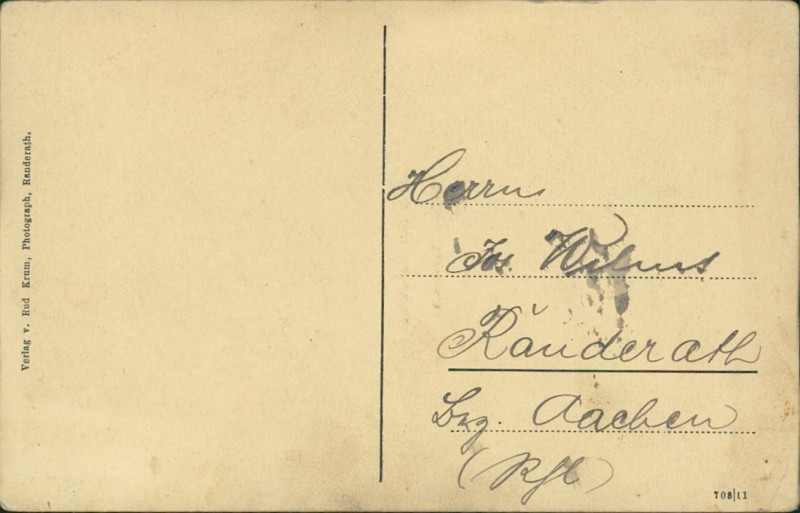 Verlag v. Rud Krum, Photograph, Randerath.
Herrn
Jos. Wilms
Randerath
Bez. Aachen
(Rhl)
708|11